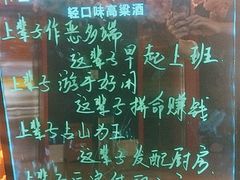 轻口味高粱酒
上辈子作恶多端
这辈子早起上班
上辈子游手好闲
这辈子拼命赚钱
上辈子占山为王
这辈子发配厨房
上辈子